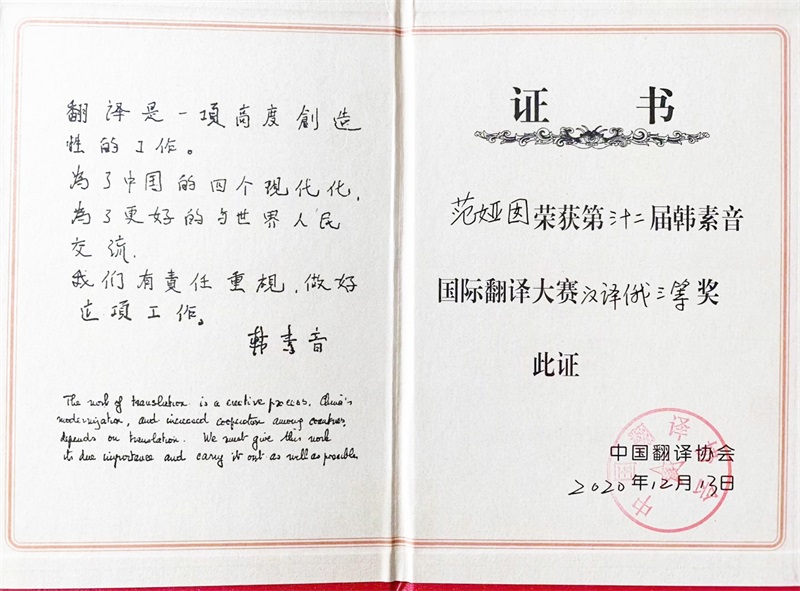 翻译是一項高度創造
性的工作。
為了中国的四个現代化,
為了更好的与世界人民
交流.
我们有責任重視,做好
这項工作。
韩素音
The work of translation is a creative process. China's
modernization, and increased cooperation among countries,
depends on translation. We must give this work
its due importance and carry it out as well as possible.
证书
范娅囡荣获第三十二届韩素音
国际翻译大赛汉译俄三等奖
此证
中国翻译协会
2020年12月13日